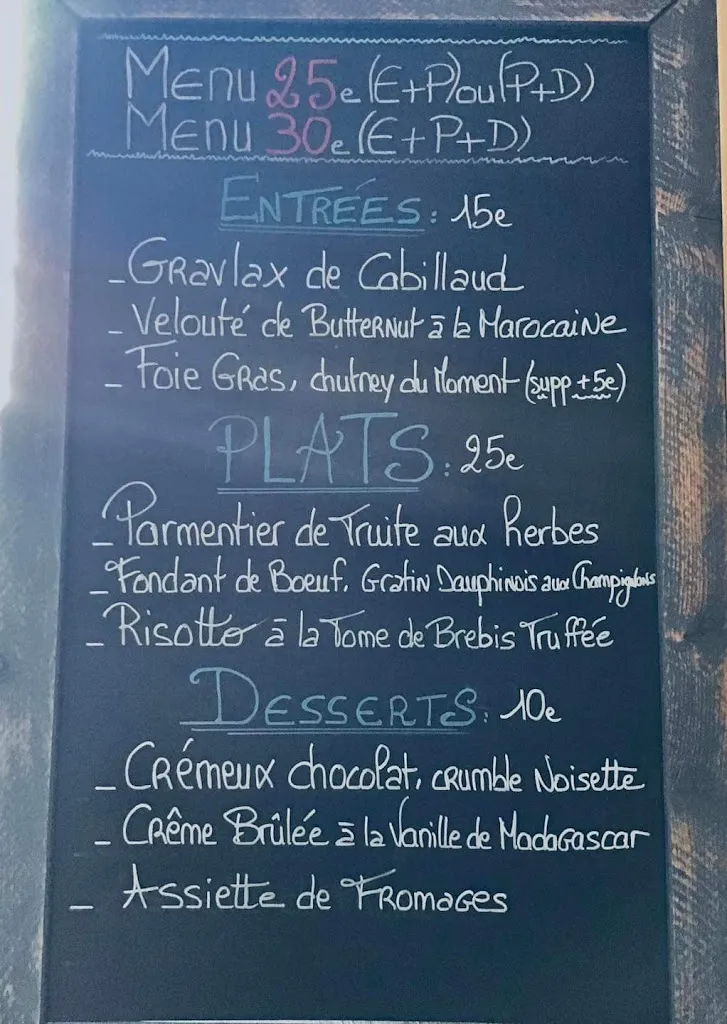 Menu 25e (E+P) ou (P+D)
Menu 30e (E+P+D)
ENTRÉES : 15e
- Gravlax de Cabillaud
- Velouté de Butternut à la Marocaine
- Foie Gras, chutney du Moment (supp +5e)
PLATS : 25e
- Parmentier de Truite aux herbes
- Fondant de Boeuf, Gratin Dauphinois aux Champignons
- Risotto à la Tome de Brebis Truffée
DESSERTS : 10e
- Crémeux chocolat, crumble Noisette
- Crême Brûlée à la Vanille de Madagascar
- Assiette de Fromages